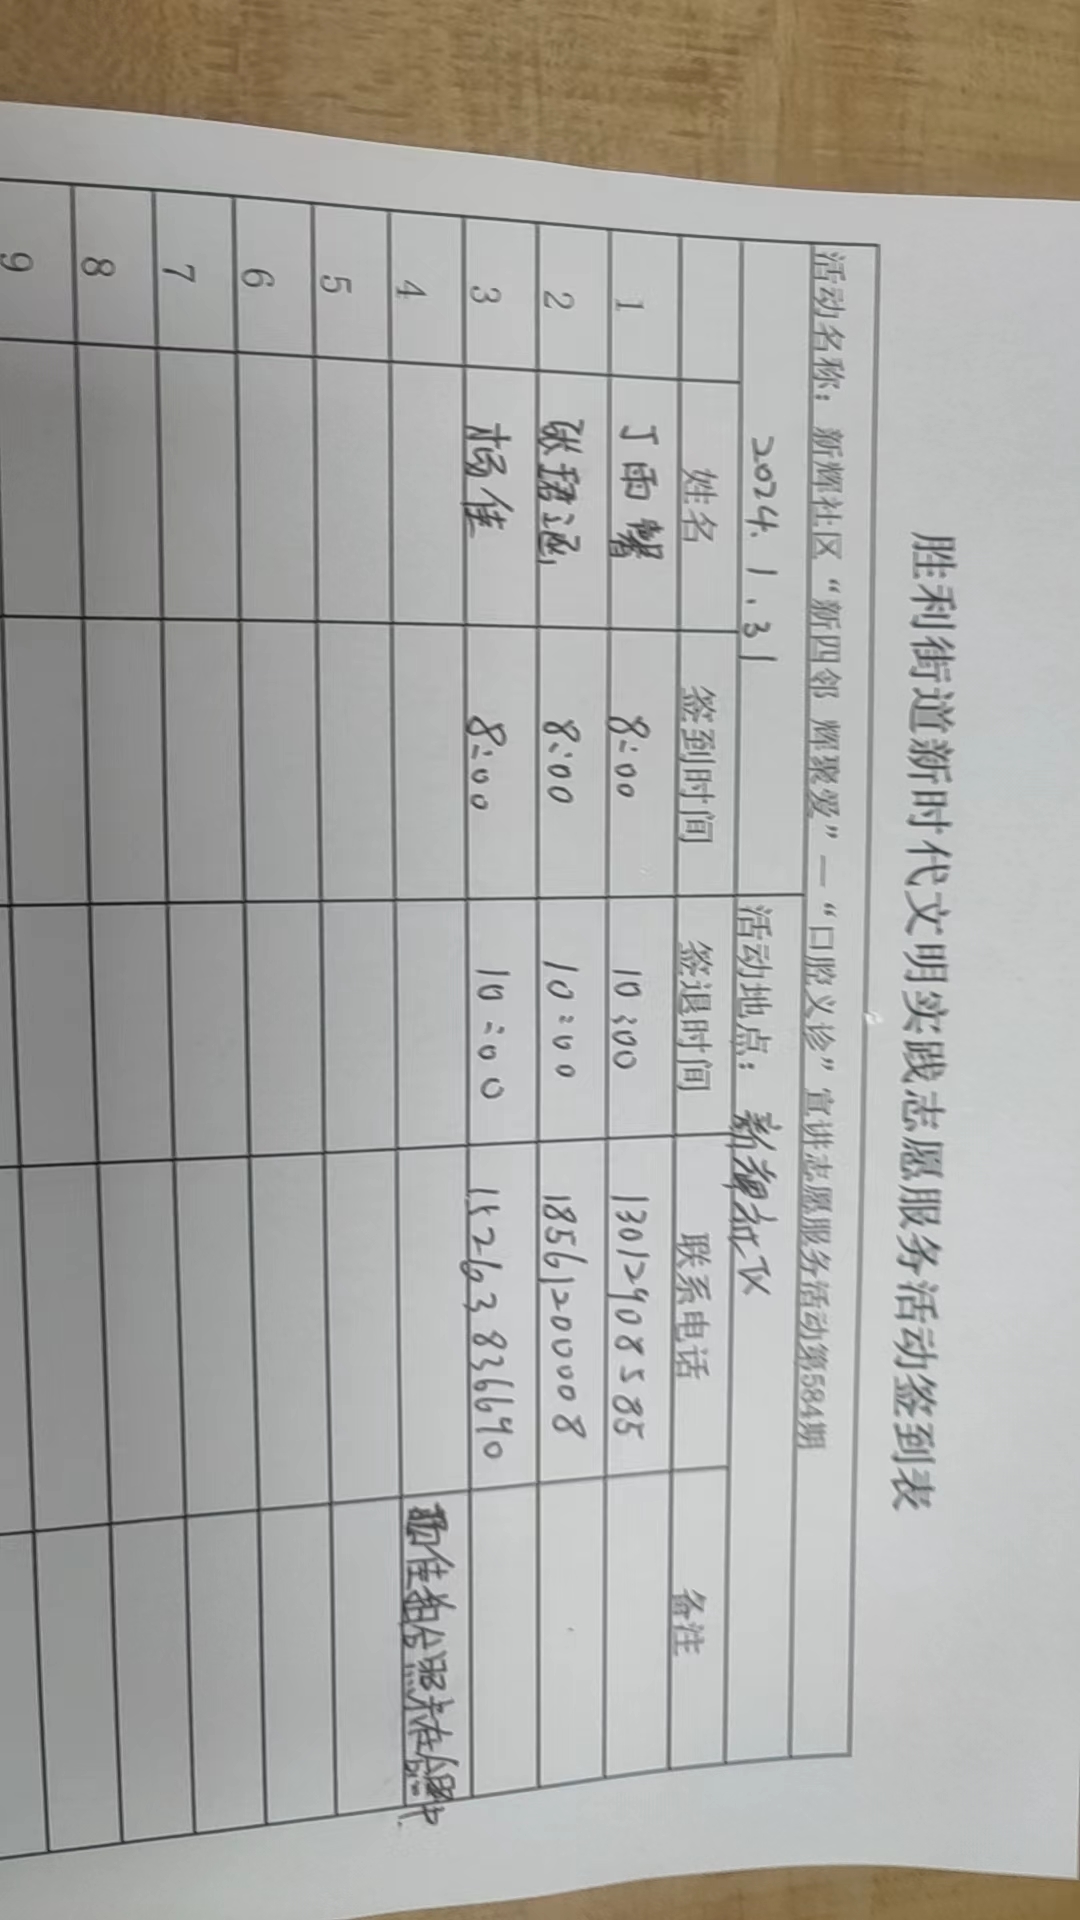 胜利街道新时代文明实践志愿服务活动签到表
活动名称：新辉社区“新四邻 辉聚爱”—“口腔义诊”宣讲志愿服务活动第584期
2024.1.31 活动地点：新辉社区
姓名 签到时间 签退时间 联系电话 备注
1 丁雨馨 8:00 10:00 13012908585
2 张珺涵 8:00 10:00 18561200008
3 杨佳 8:00 10:00 15263836690
4
5
6
7
8
9